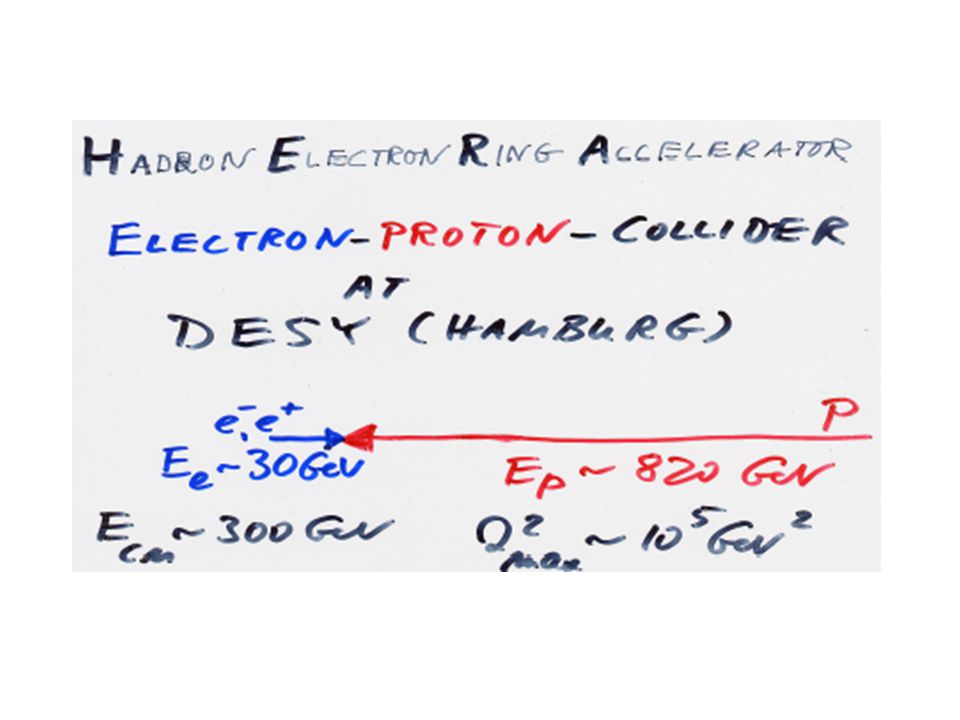 HADRON ELECTRON RING ACCELERATOR
ELECTRON-PROTON-COLLIDER
AT
DESY (HAMBURG)
e⁻, e⁺ P
E_e ~ 30 GeV E_p ~ 820 GeV
E_cm ~ 300 GeV Q²_max ~ 10⁵ GeV²